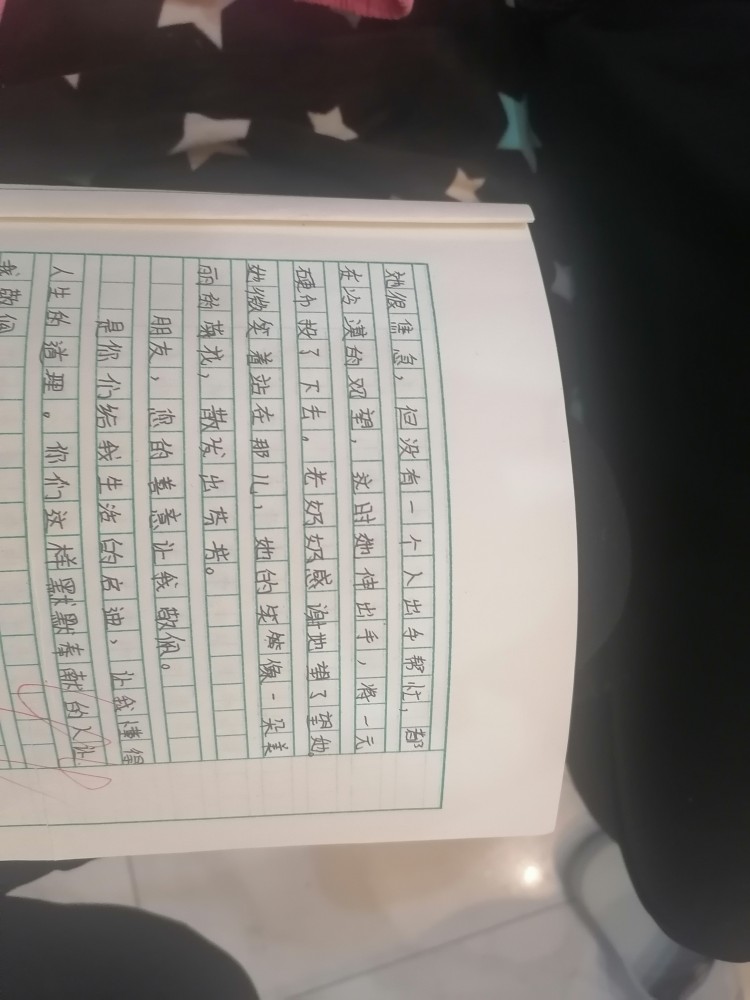 她很焦急，但没有一个人出手帮忙，都
在冷漠的观望，这时她伸出手，将一元
硬币投了下去。老奶奶感谢地望了望她，
她微笑着站在那儿，她的笑容像一朵美
丽的茶花，散发出芬芳。
朋友，您的善意让我敬佩。
是你们给我生活的启迪，让我懂得
人生的道理。你们这样默默奉献的人让
我敬佩